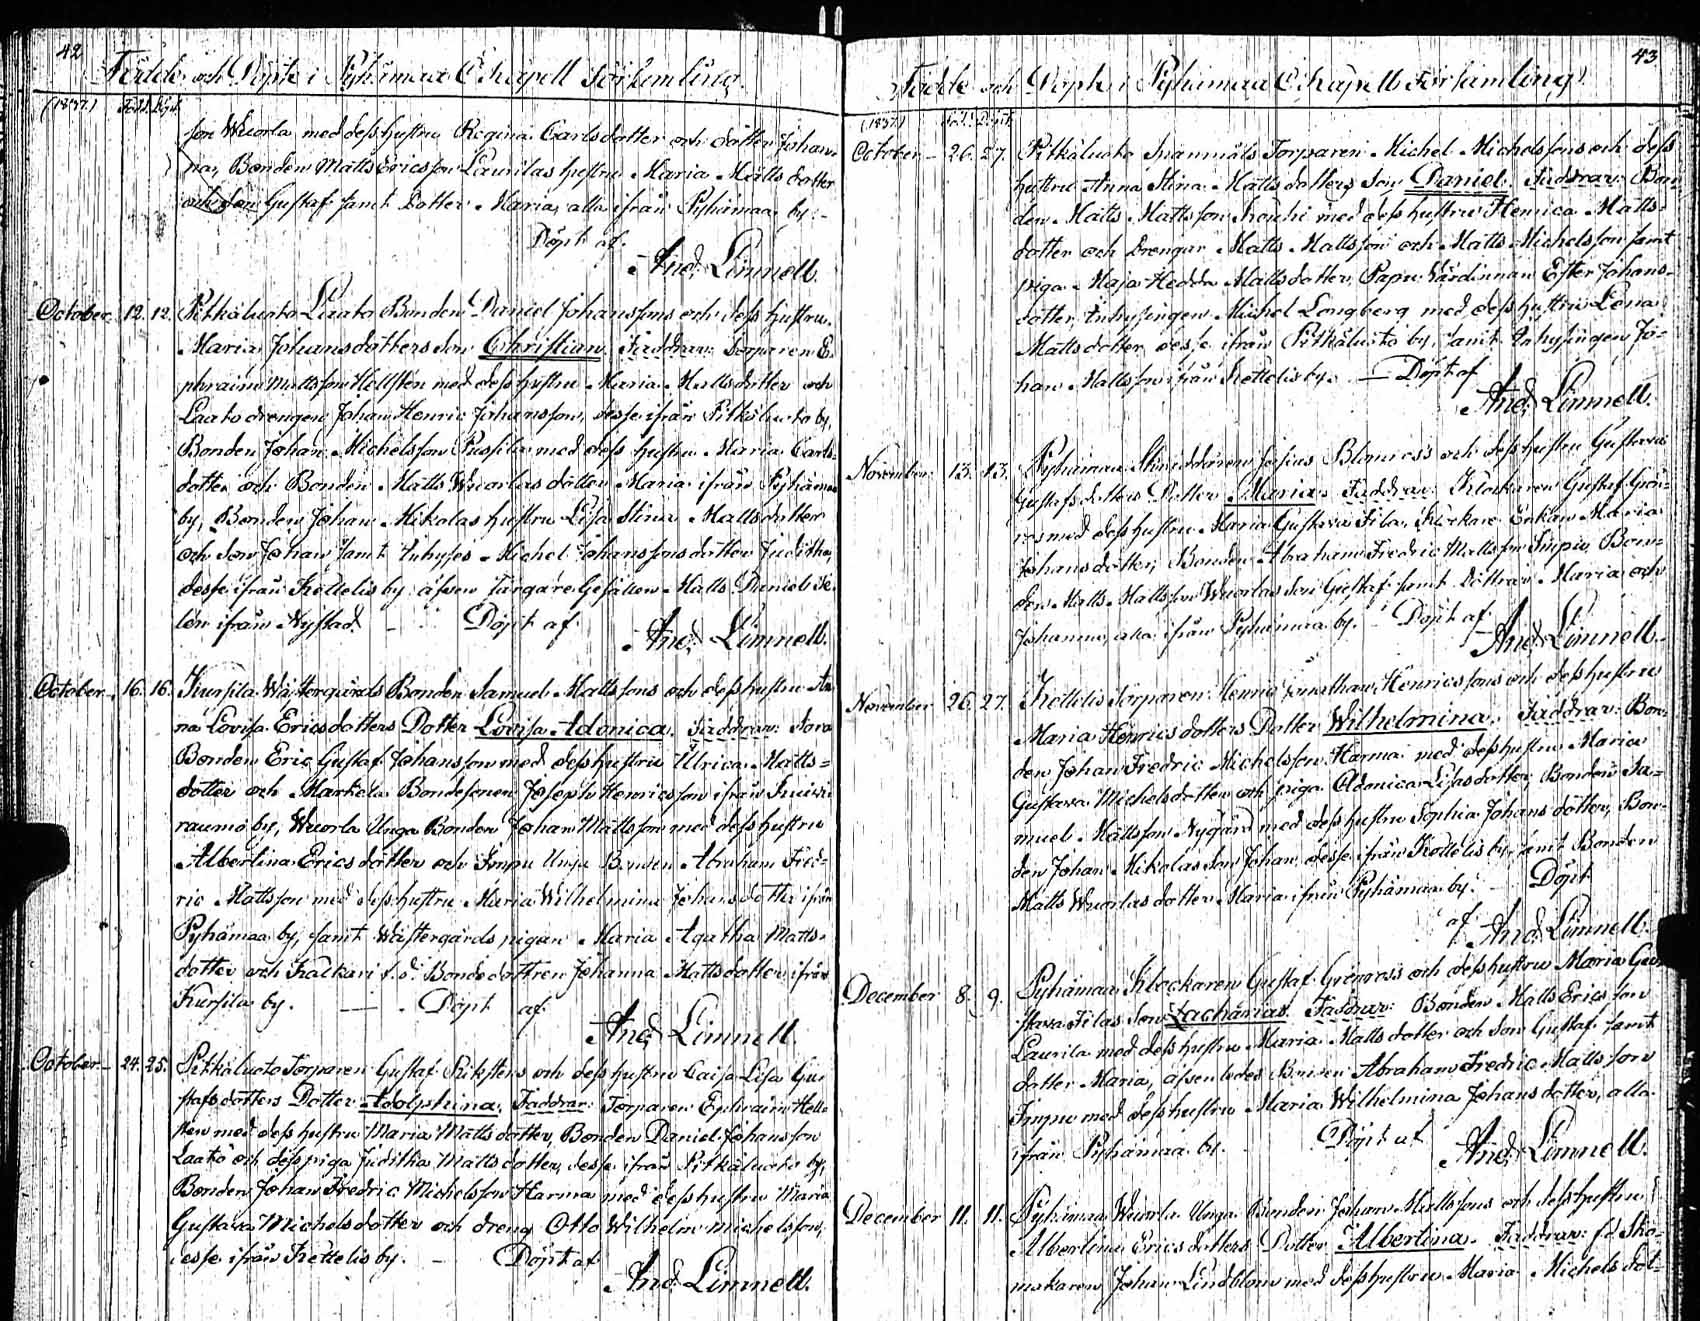 42
Födde och Döpte i Pyhämaa Capell Församling.
(1837.) Född. Döpt.
son Wuorla med dess hustru Regina Carlsdotter och dotter Johan-
na, Bonden Matts Ericsson Laurilas hustru Maria Matts dotter
och son Gustaf samt Dotter Maria, alla ifrån Pyhämaa by. –
Döpt af
And. Limnell.
October 12. 12. Pitkäluoto Laato Bonden Daniel Johanssons och dess hustru
Maria Johansdotters Son Christian. Faddrar: Torparen E-
phraim Mattsson Hellsten med dess hustru Maria Mattsdotter och
Laato drengen Johan Henric Johansson, desse ifrån Pitkäluoto by,
Bonden Johan Michelsson Pussila med dess hustru Maria Carls-
dotter och Bonden Matts Wuorlas dotter Maria ifrån Pyhämaa
by, Bonden Johan Mikolas hustru Lisa Stina Mattsdotter
och son Johan samt Inhyses Michel Johanssons dotter Juditha,
desse ifrån Kettelis by äfven Färgare Gesällen Matts Daniel Se-
lén ifrån Nystad. – Döpt af
And. Limnell.
October 16. 16. Kursila Wästergårds Bonden Samuel Mattssons och dess hustru An-
na Lovisa Ericsdotters Dotter Lovisa Adonica. Faddrar:
Bonden Eric Gustaf Johansson med dess hustru Ulrica Matts-
dotter och Markela Bondesonen Joseph Henricsson ifrån
raumo by, Wuorla Unga Bonden Johan Mattsson med dess hustru
Albertina Ericsdotter och Impu Unga Bonden Abraham Fred-
ric Mattsson med dess hustru Maria Wilhelmina Johansdotter ifrån
Pyhämaa by, samt Wästergårds pigan Maria Agatha Matts-
dotter och Kalkari f.d. Bondedottren Johanna Mattsdotter ifrån
Kursila by. – Döpt af
And. Limnell.
October 24. 25. Pitkäluoto Torparen Gustaf Riksténs och dess hustru Caisa Lisa Gu-
stafsdotters Dotter Adolphina. Faddrar: Torparen Ephraim Hell-
sten med dess hustru Maria Mattsdotter, Bonden Daniel Johansson
Laato och dess piga Juditha Mattsdotter, desse ifrån Pitkäluoto by,
Bonden Johan Fredric Michelsson Harma med dess hustru Maria
Gustava Michelsdotter och dreng Otto Wilhelm Michelsson,
desse ifrån Kettelis by. – Döpt af
And. Limnell.
43
Födde och Döpte i Pyhämaa Capells Församling.
(1837.) Född. Döpt.
October 26. 27. Pitkäluoto Torparen Michel Michelssons och dess
hustru Anna Stina Mattsdotters Son Daniel. Faddrar: Bon-
den Matts Mattsson Kouhi med dess hustru Henrica Matts-
dotter och Drengar Matts Mattsson och Matts Michelsson samt
piga Maja Hedda Mattsdotter, Papu Värdinnan Ester Johans-
dotter, Inhysingen Michel Longberg med dess hustru Lena
Mattsdotter desse ifrån Pitkäluoto by, samt Inhysingen Jo-
han Mattsson ifrån Kettelis by. – Döpt af
And. Limnell.
November 13. 13. Pyhämaa Skräddaren Josias Blomros's och dess hustru Gustava
Gustafsdotters Dotter Maria. Faddrar: Klockaren Gustaf Grön-
ros med dess hustru Maria Gustava Fila, Klockare Enkan Maria
Johansdotter, Bonden Abraham Fredric Mattsson Impu, Bon-
den Matts Mattsson Wuorlas son Gustaf samt döttrar Maria och
Johanna, alla ifrån Pyhämaa by. – Döpt af
And. Limnell.
November 26. 27. Kettelis Torparen Henric Jonathan Henricssons och dess hustru
Maria Henricsdotters Dotter Wilhelmina. Faddrar: Bon-
den Johan Fredric Michelsson Harma med dess hustru Maria
Gustava Michelsdotter och piga Adonica Lisasdotter, Bonden Sa-
muel Mattsson Nygård med dess hustru Sophia Johansdotter, Bon-
den Johan Mikolas son Johan, desse ifrån Kettelis by, samt Bonden
Matts Wuorlas dotter Maria ifrån Pyhämaa by. – Döpt
af And. Limnell.
December 8. 9. Pyhämaa Klockaren Gustaf Grönros's och dess hustru Maria Gu-
stava Filas Son Zacharias. Faddrar: Bonden Matts Ericsson
Laurila med dess hustru Maria Mattsdotter och son Gustaf samt
dotter Maria, äfvenledes Bonden Abraham Fredric Mattsson
Impu med dess hustru Maria Wilhelmina Johansdotter, alla
ifrån Pyhämaa by. Döpt af
And. Limnell.
December 11. 11. Pyhämaa Wuorla Unga Bonden Johan Mattssons och dess hustru
Albertina Ericsdotters Dotter Albertina. Faddrar: f.d. Sko-
makaren Johan Lindblom med dess hustru Maria Michelsdot-